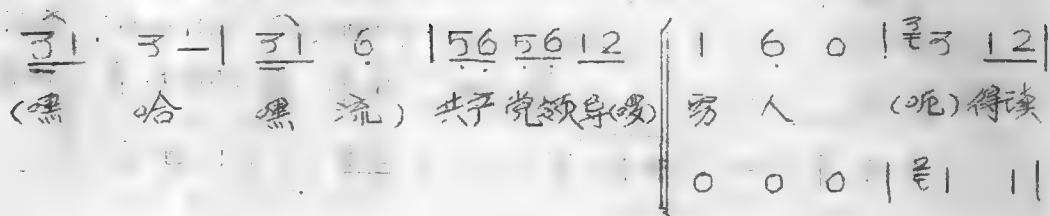 3 1 3 – | 3 1 6 | 5 6 5 6 1 2 | 1 6 0 | 3 3 1 2 |
(嘿 哈 嘿 流) 共产党领导(啰) 穷人 (呃) 得读
0 0 0 | 2 1 1 |